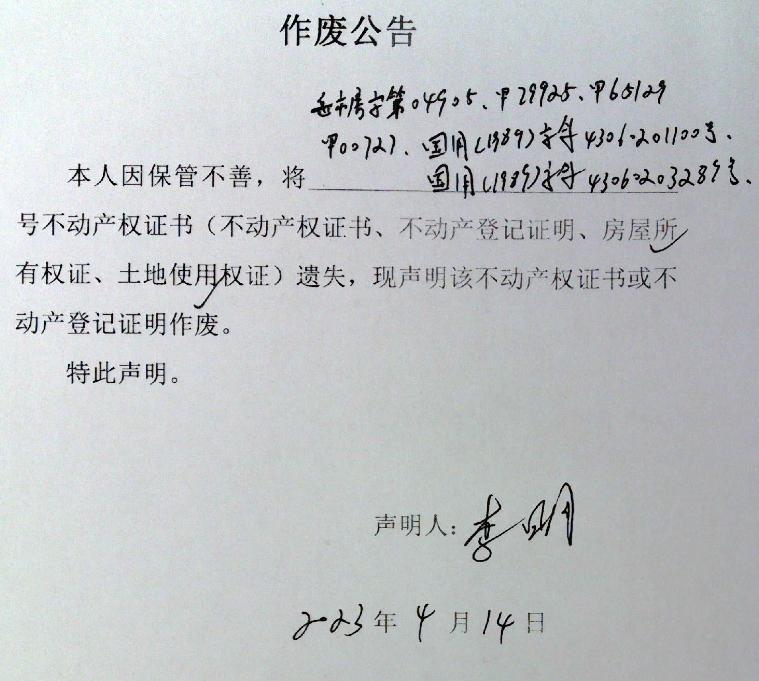 作废公告
岳市房字第04905、甲29925、甲65129
甲00727、国用(1989)字第43060201100号、
本人因保管不善，将国用(1989)字第43060203289号、
号不动产权证书（不动产权证书、不动产登记证明、房屋所
有权证、土地使用权证）遗失，现声明该不动产权证书或不
动产登记证明作废。
特此声明。
声明人：李明
2023年4月14日